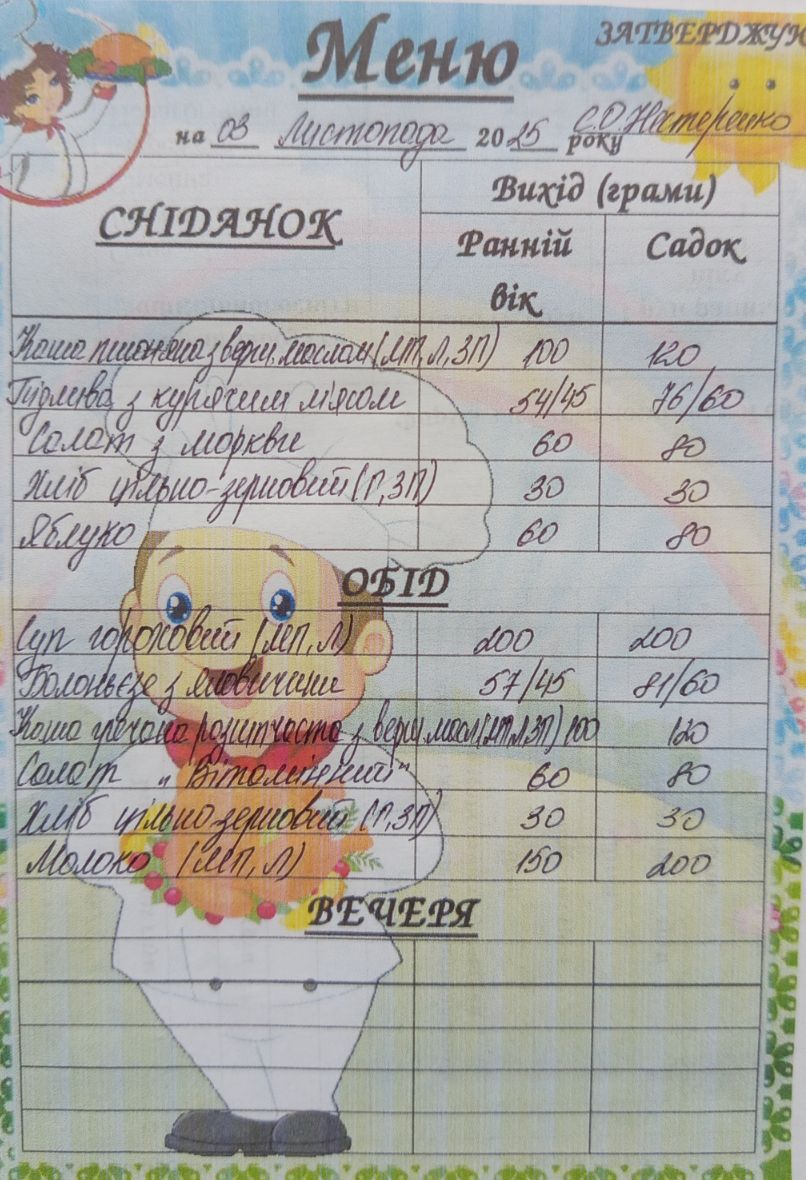 Меню
ЗАТВЕРДЖУЮ
на 03 Листопада 2025 року
СНІДАНОК
Вихід (грами)
Ранній вік
Садок
Каша пшоняна з верш. маслом (МП, Л, ЗП) 100 120
з курячим м'ясом 54/45 76/60
Салат з моркви 60 80
Хліб цільно-зерновий (Г, ЗП) 30 30
Яблуко 60 80
ОБІД
Суп гороховий (МП, Л) 200 200
Болоньєзе з яловичини 57/45 81/60
Каша гречана розсипчаста з верш масл (МП, Л, ЗП) 100 120
Салат "Вітамінний" 60 80
Хліб цільно зерновий (Г, ЗП) 30 30
Молоко (МП, Л) 150 200
ВЕЧЕРЯ